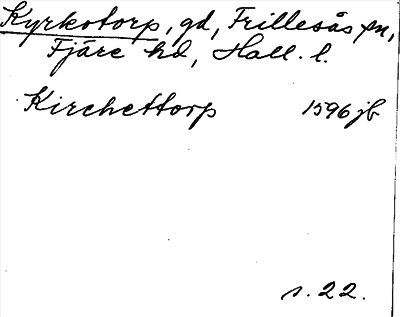 Kyrkotorp, gd, Frillesås sn,
Fjäre hd, Hall. l.
Kirchettorp 1596 jb
s. 22.